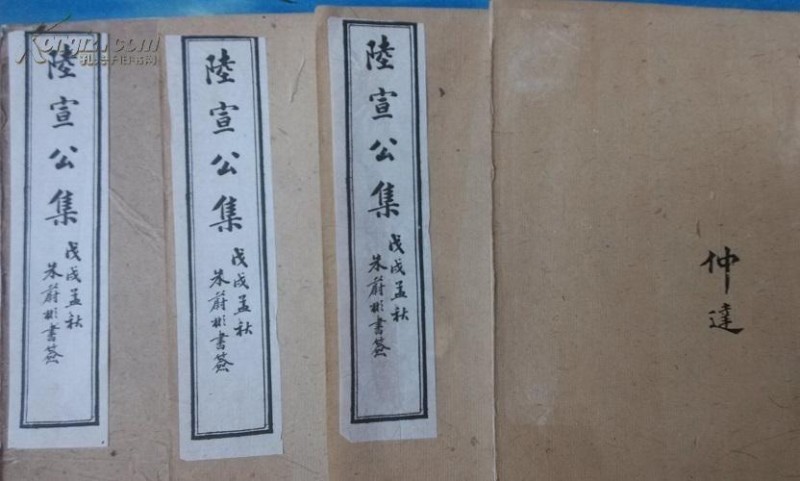 Kongfz.com
孔夫子旧书网
陸宣公集
戊戌孟秋
朱蔚彬書簽
陸宣公集
戊戌孟秋
朱蔚彬書簽
陸宣公集
戊戌孟秋
朱蔚彬書簽
仲達